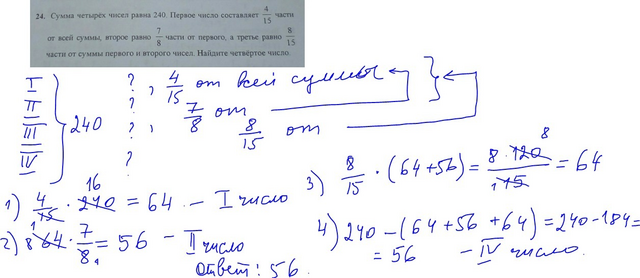 24. Сумма четырех чисел равна 240. Первое число составляет 4/15 части
от всей суммы, второе равно 7/8 части от первого, а третье равно 8/15
части от суммы первого и второго чисел. Найдите четвертое число.
I ? , 4/15 от всей суммы
II ? 7/8 от
III 240 ? , 8/15 от
IV ?
1) 4/15 · 240 = 64 – I число
16
2) 64 · 7/8 = 56 – II число
8 1 1
3) 8/15 · (64+56) = 8·120/15 = 64
8 1
4) 240 – (64+56+64) = 240-184=
= 56 – IV число.
Ответ: 56.